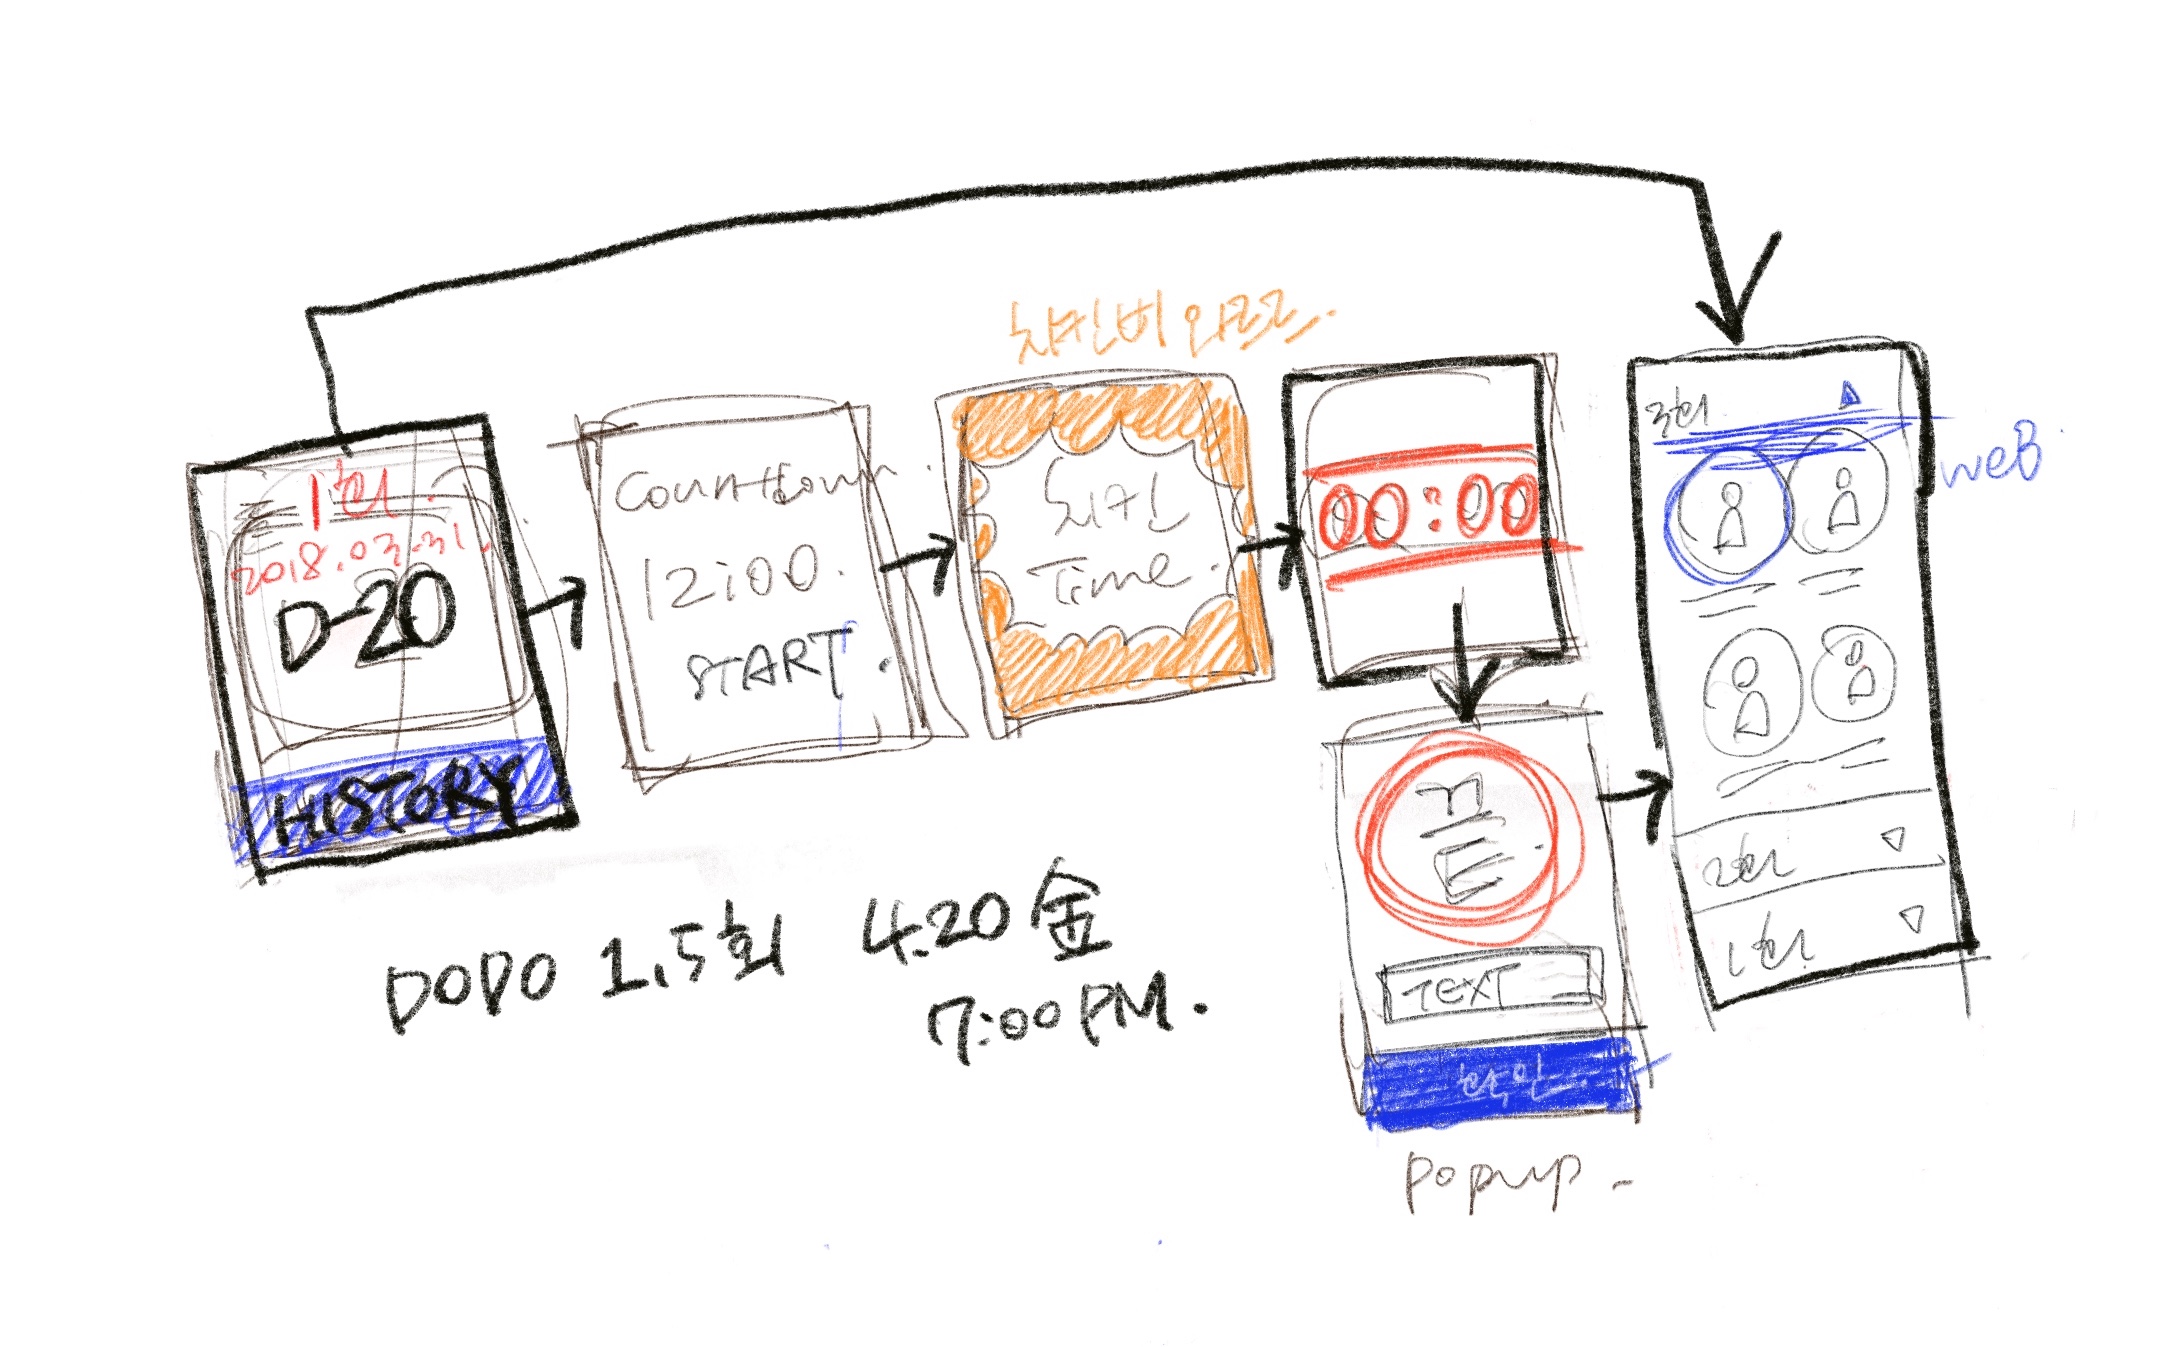 1회.
2018.03.31.
D-20
HISTORY
Countdown.
12:00.
START.
치킨
Time.
00:00
TEXT
확인
popup.
3회
2회
1회.
WEB
DODO 1.5회 4.20 金
7:00PM.